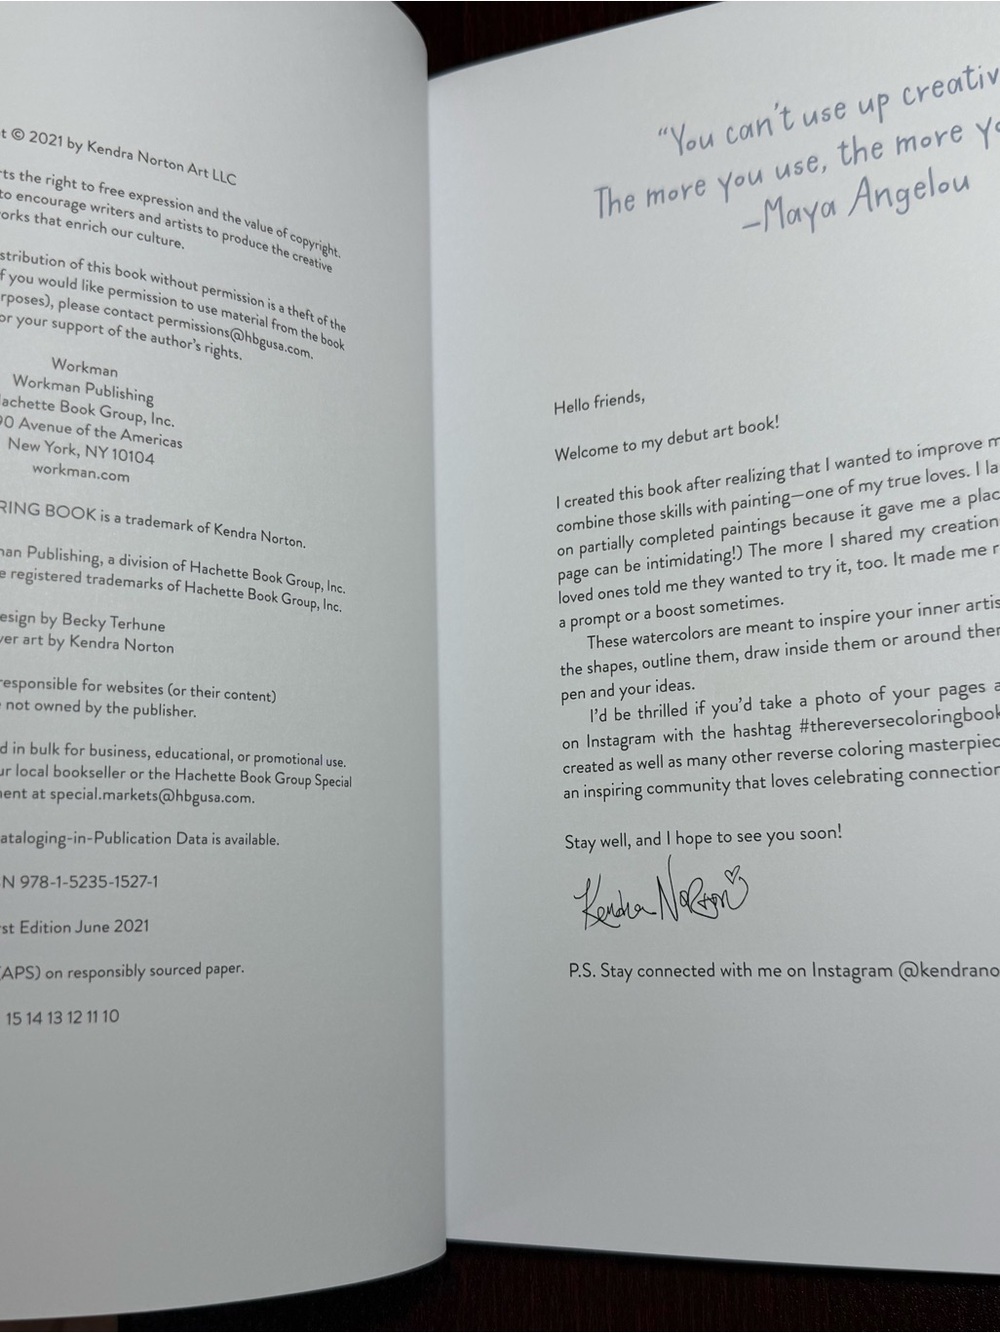 © 2021 by Kendra Norton Art LLC
the right to free expression and the value of copyright.
to encourage writers and artists to produce the creative
that enrich our culture.
of this book without permission is a theft of the
if you would like permission to use material from the book
please contact permissions@hbgusa.com.
your support of the author's rights.
Workman
Workman Publishing
Book Group, Inc.
Avenue of the Americas
New York, NY 10104
workman.com
BOOK is a trademark of Kendra Norton.
Publishing, a division of Hachette Book Group, Inc.
registered trademarks of Hachette Book Group, Inc.
by Becky Terhune
art by Kendra Norton
responsible for websites (or their content)
not owned by the publisher.
in bulk for business, educational, or promotional use.
local bookseller or the Hachette Book Group Special
at special.markets@hbgusa.com.
Cataloging-in-Publication Data is available.
978-1-5235-1527-1
Edition June 2021
(APS) on responsibly sourced paper.
15 14 13 12 11 10
"You can't use up creativ
The more you use, the more yo
-Maya Angelou
Hello friends,
Welcome to my debut art book!
I created this book after realizing that I wanted to improve m
combine those skills with painting—one of my true loves. I la
on partially completed paintings because it gave me a plac
page can be intimidating!) The more I shared my creation
loved ones told me they wanted to try it, too. It made me r
a prompt or a boost sometimes.
These watercolors are meant to inspire your inner artis
the shapes, outline them, draw inside them or around ther
pen and your ideas.
I'd be thrilled if you'd take a photo of your pages a
on Instagram with the hashtag #thereversecoloringbook
created as well as many other reverse coloring masterpiec
an inspiring community that loves celebrating connection
Stay well, and I hope to see you soon!
Kendra Norton
P.S. Stay connected with me on Instagram @kendrano